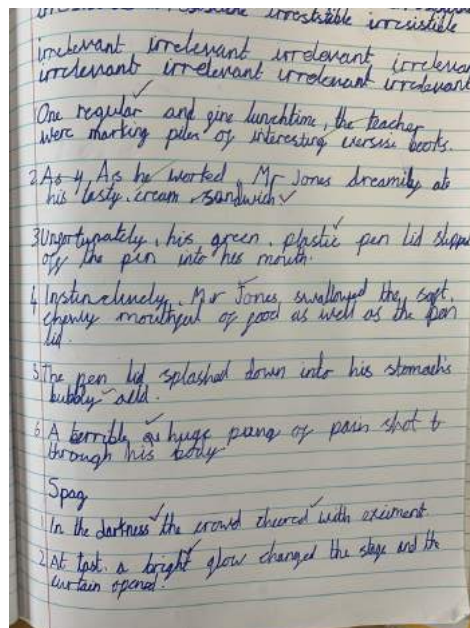 irresistible irresistible
irrelevant irrelevant irrelevant
irrelevant irrelevant irrelevant irrelevant
One regular and fine lunchtime, the teacher
were marking piles of interesting books.
2. As y As he worked, Mr Jones dreamily ate
his tasty, cream sandwich
3 Unfortunately, his green, plastic pen lid
off the pen into his mouth.
4. Mr Jones, swallowed the soft,
mouthful of food as well as the pen
lid.
5. The pen lid splashed down into his stomach's
bubbly
6. A huge pang of pain shot
through his body
Spag
1. In the darkness the crowd cheered with
2. At last, a bright glow changed the stage and the
curtain opened.